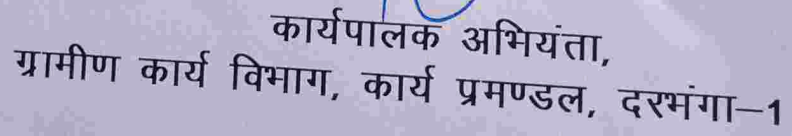 कार्यपालक अभियंता,
ग्रामीण कार्य विभाग, कार्य प्रमण्डल, दरभंगा–1